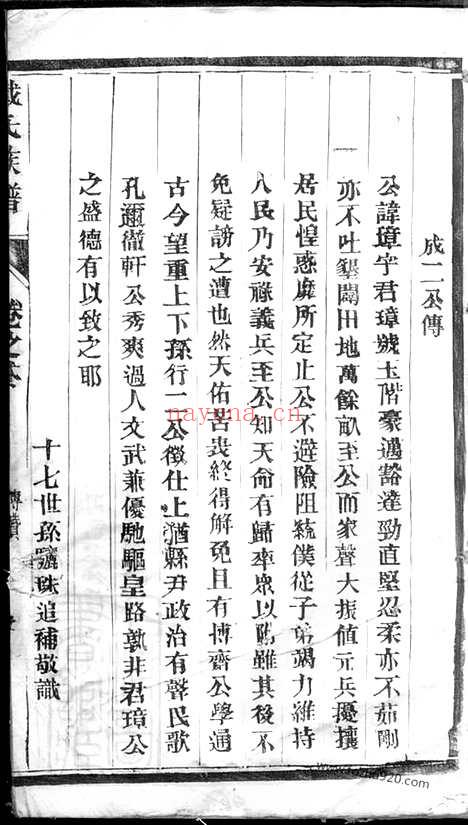 成二公傳
公諱璋字君璋號玉階豪邁豁達勁直堅忍柔亦不茹剛
亦不吐墾闢田地萬餘畝至公而家聲大振值元兵擾攘
居民惶惑靡所定止公不避險阻統僕從子弟竭力維持
人民乃安祿義兵至公知天命有歸率眾以歸雖其後不
免疑謗之遭也然天佑善良終得解免且有博齋公學通
古今望重上下孫行一公徵仕上猶縣尹政治有聲民歌
孔邇徹軒公秀爽過人文武兼優馳驅皇路孰非君璋公
之盛德有以致之耶
十七世孫 珠追補敬識
氏族譜
卷之
傳贊
nayana.cn